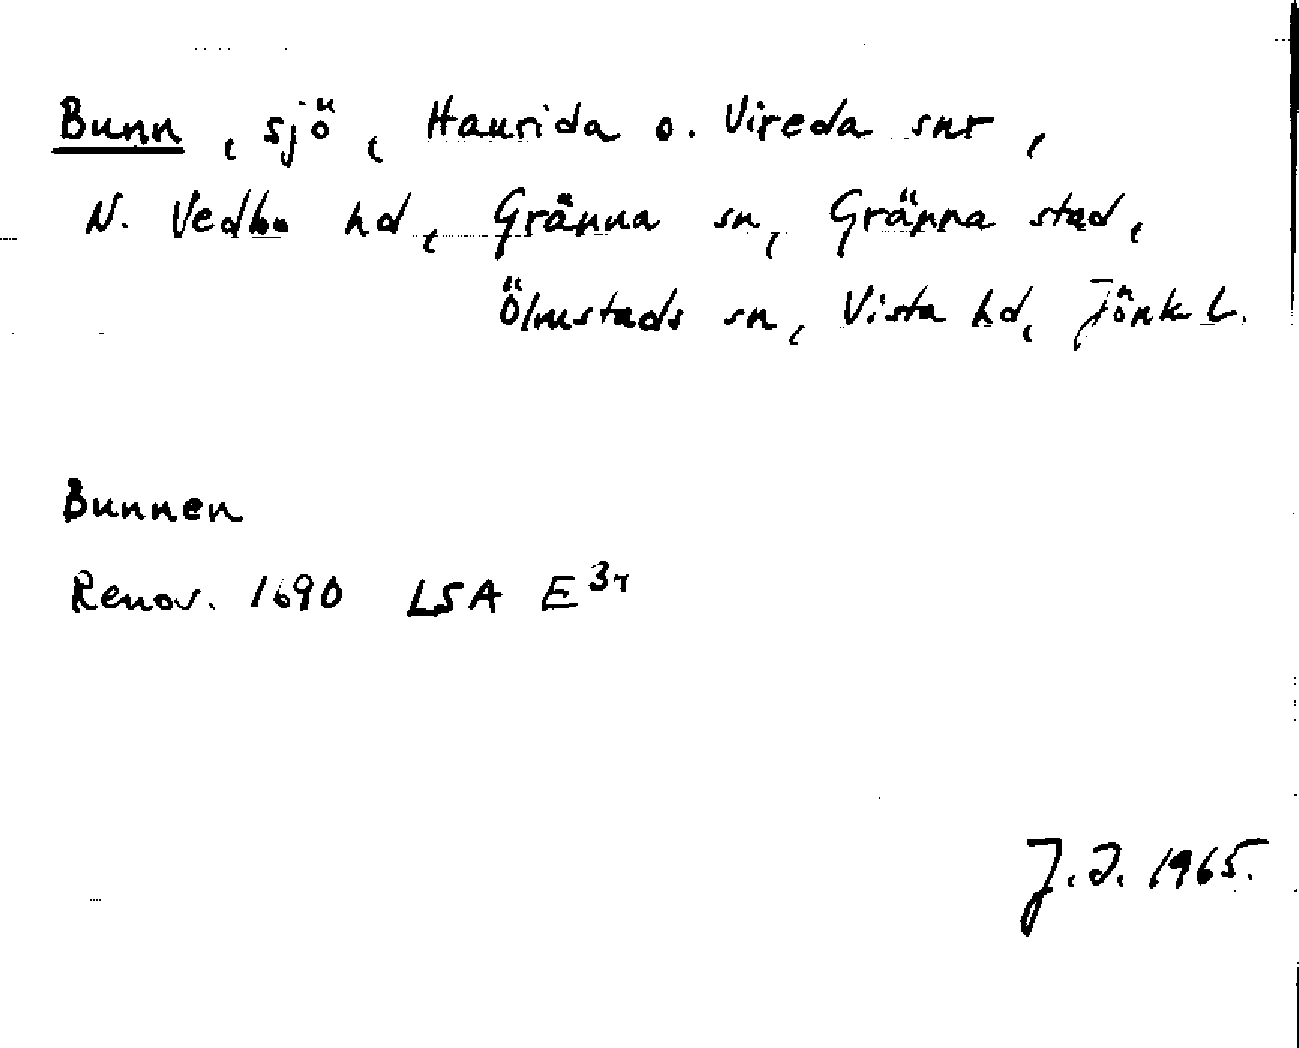 Bunn, sjö, Haurida o. Vireda snr,
N. Vedbo hd, Gränna sn, Gränna stad,
Ölmstads sn, Vista hd, Jönk. L.
Bunnen
Renov. 1690 LSA E³⁴
J.J. 1965.